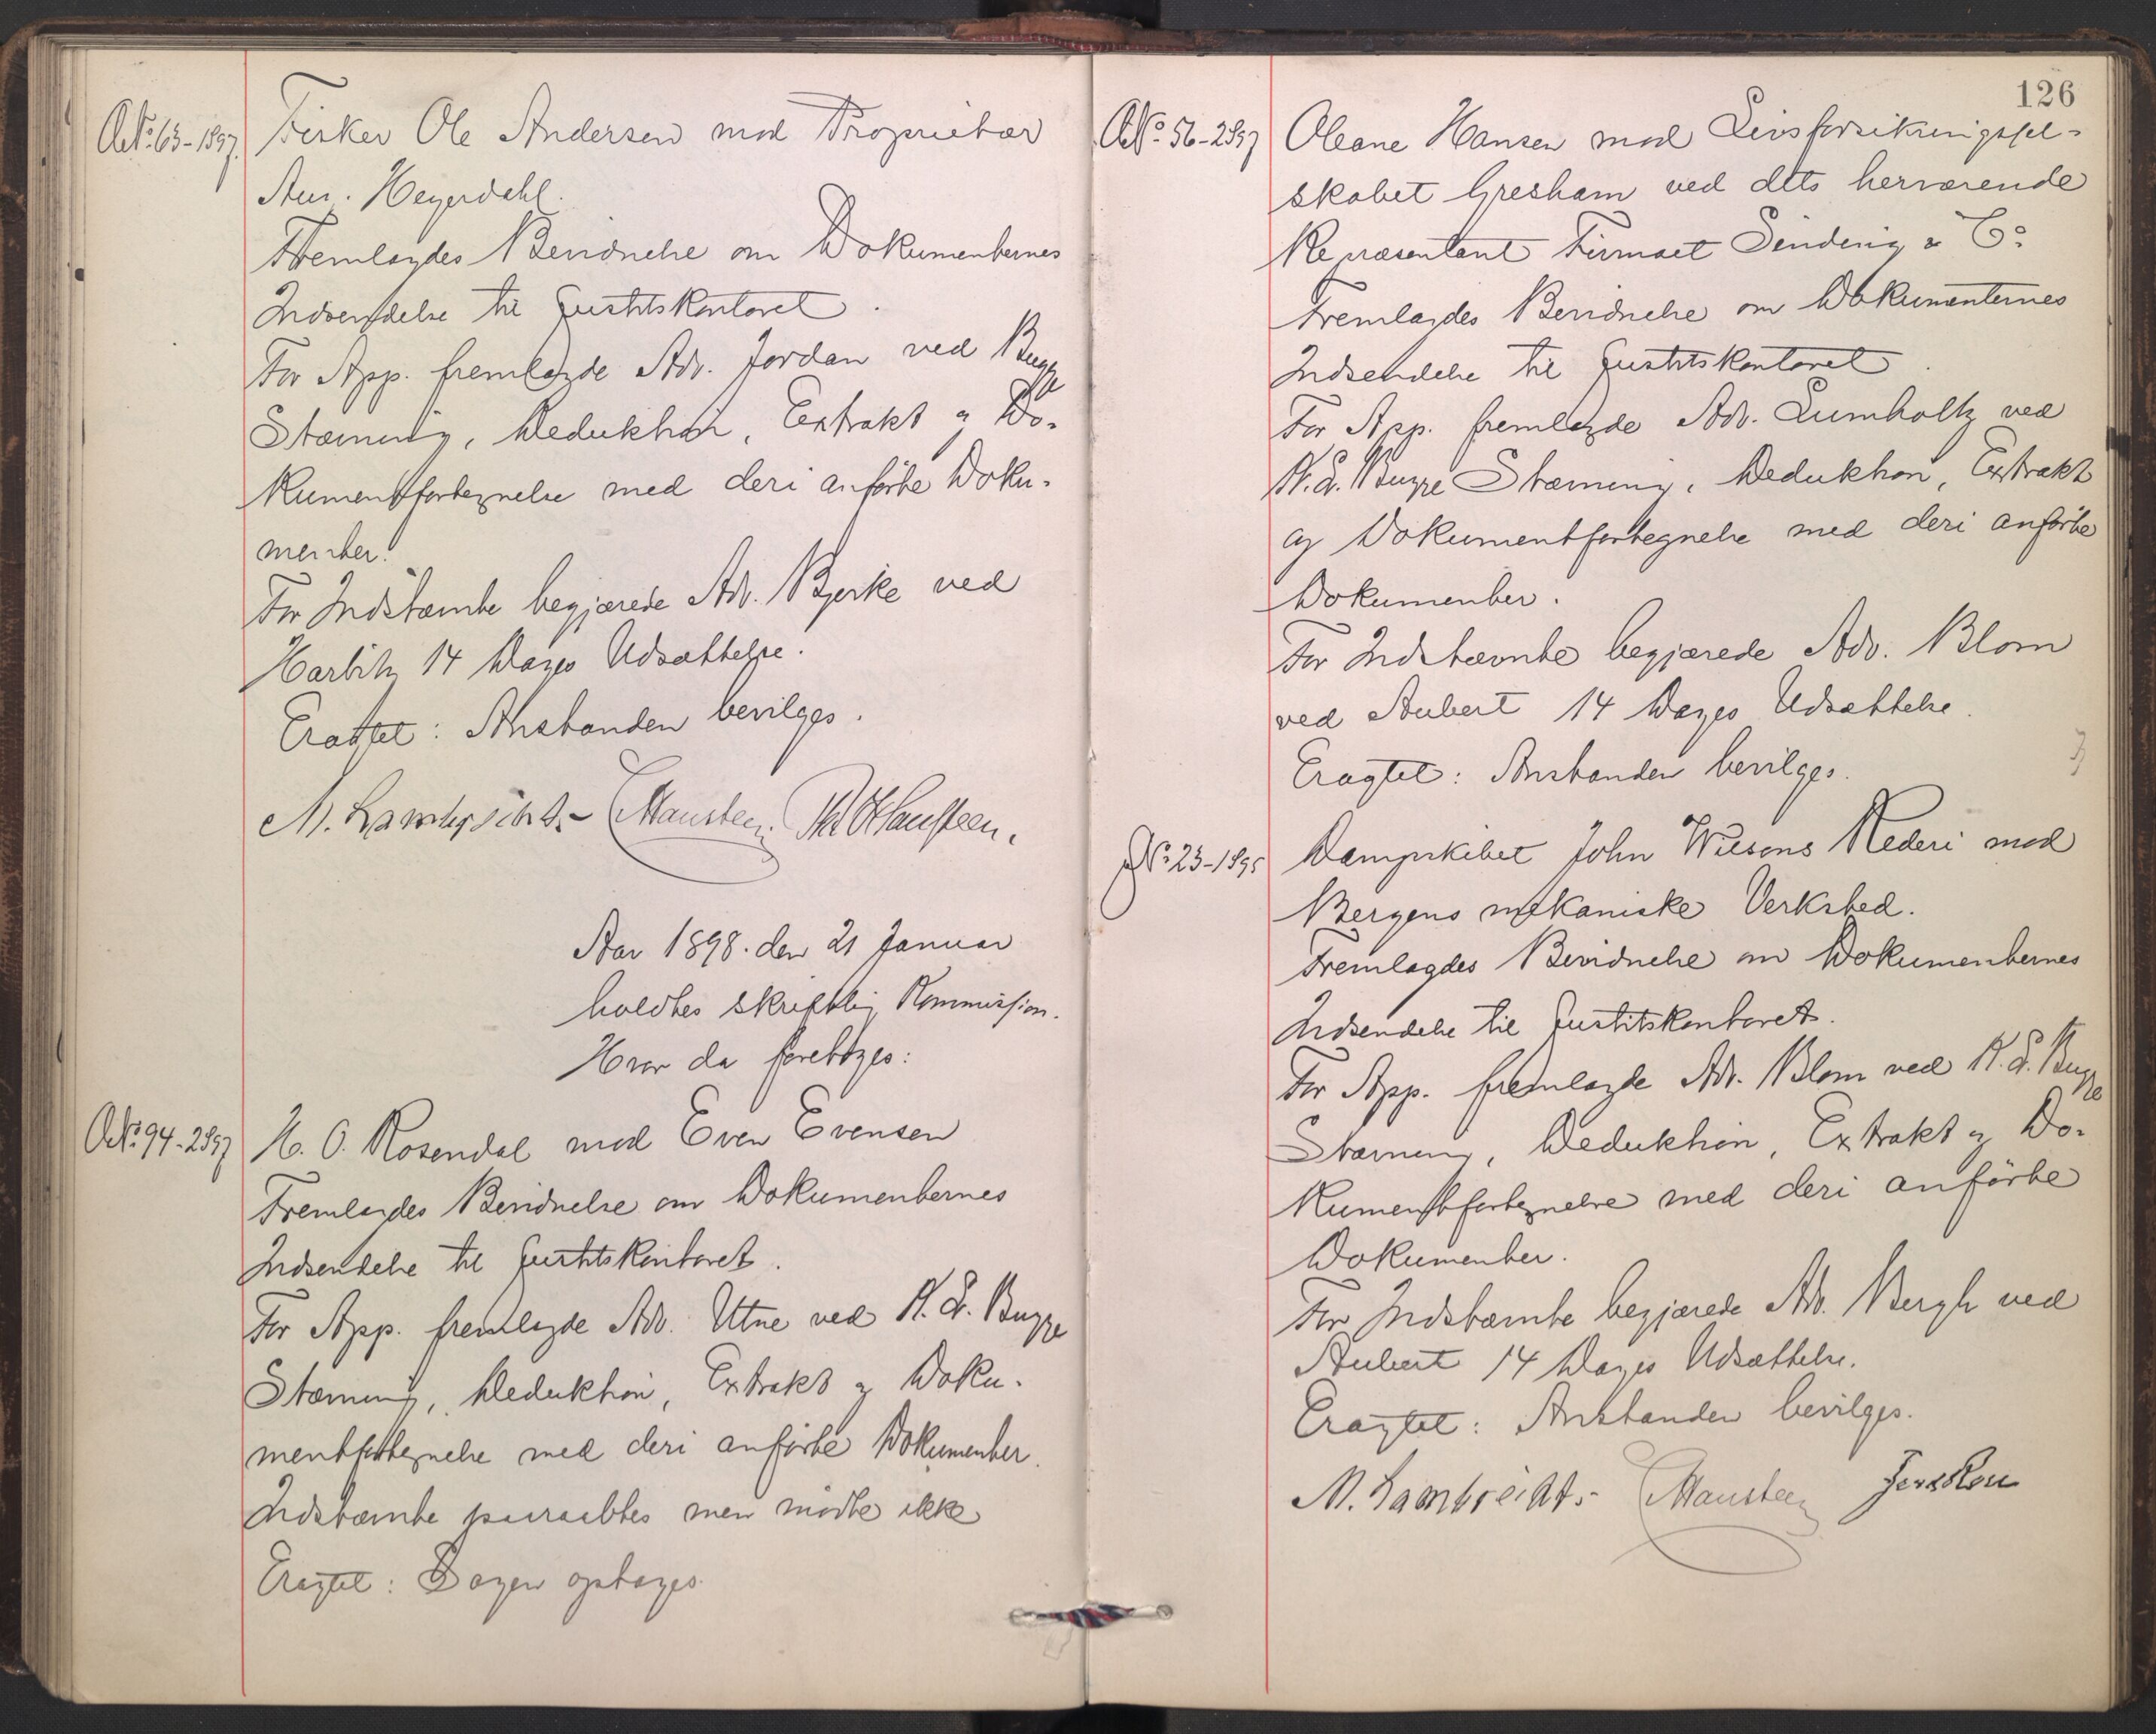 A Nº 63-1897.
Fisker Ole Andersen mod Proprietær
Aur. Heyerdahl.
Fremlagdes Bevidnelse om Dokumenternes
Indsendelse til Justitskontoret.
For App. fremlagde Adv. Jordan ved Bugge
Stævning, Deduktion, Extrakt og Do-
kumentfortegnelse med deri anførte Doku-
menter.
For Indstævnte begjærede Adv. Bjerke ved
Harbitz 14 Dages Udsættelse.
Eragtet: Anstanden bevilges.
M. Lambrechts. Mausteen.
Aar 1898. den 21 Januar
holdtes skriftlig Kommission.
Hvor da foretoges:
A Nº 94-2897
H. O. Rosendal mod Even Evensen
Fremlagdes Bevidnelse om Dokumenternes
Indsendelse til Justitskontoret.
For App. fremlagde Adv. Utne ved K. L. Bugge
Stævning, Deduktion, Extrakt og Doku-
mentfortegnelse med deri anførte Dokumenter.
Indstævnte paaraabtes men mødte ikke
Eragtet: Sagen optages.
126
A Nº 56-2897
Oleane Hansen mod Livsforsikringssel-
skabet Gresham ved dets herværende
Repræsentant Firmaet Sinding & Co.
Fremlagdes Bevidnelse om Dokumenternes
Indsendelse til Justitskontoret.
For App. fremlagde Adv. Lumholtz ved
K. L. Bugge Stævning, Deduktion, Extrakt
og Dokumentfortegnelse med deri anførte
Dokumenter.
For Indstævnte begjærede Adv. Blom
ved Aubert 14 Dages Udsættelse.
Eragtet: Anstanden bevilges.
Nº 23-1895
Dampskibet John Wilsons Rederi mod
Bergens mekaniske Verksted.
Fremlagdes Bevidnelse om Dokumenternes
Indsendelse til Justitskontoret.
For App. fremlagde Adv. Blom ved K. L. Bugge
Stævning, Deduktion, Extrakt og Do-
kumentfortegnelse med deri anførte
Dokumenter.
For Indstævnte begjærede Adv. Bergh ved
Aubert 14 Dages Udsættelse.
Eragtet: Anstanden bevilges.
M. Lambrechts. Mausteen